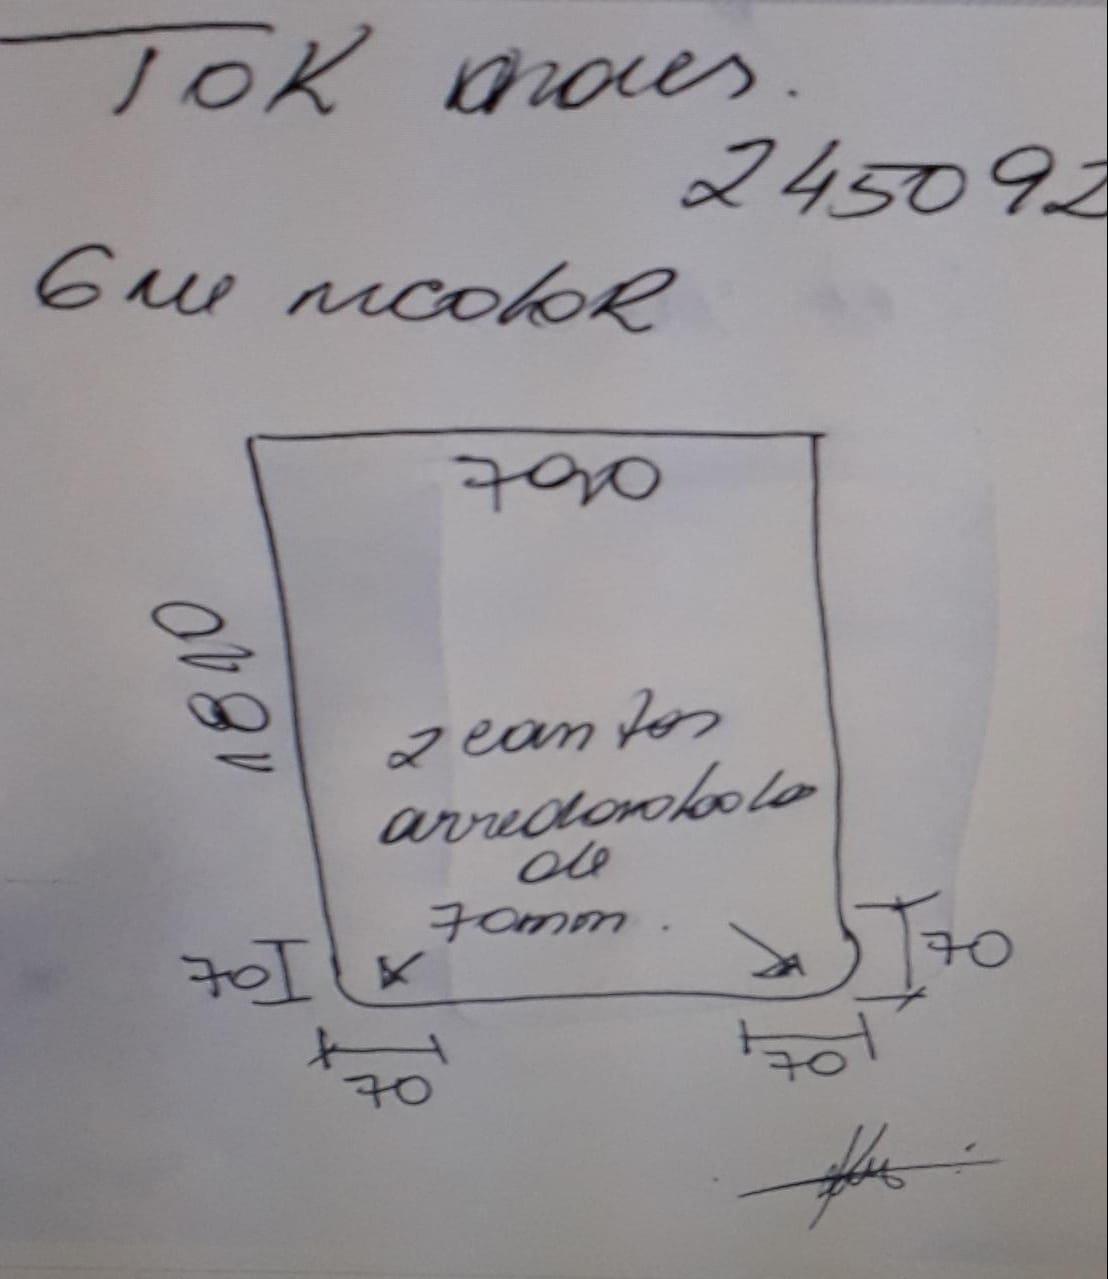 TOK
245092
6mm incolor
790
2 cantos
arredondado
de
70mm.
70
70
70
70